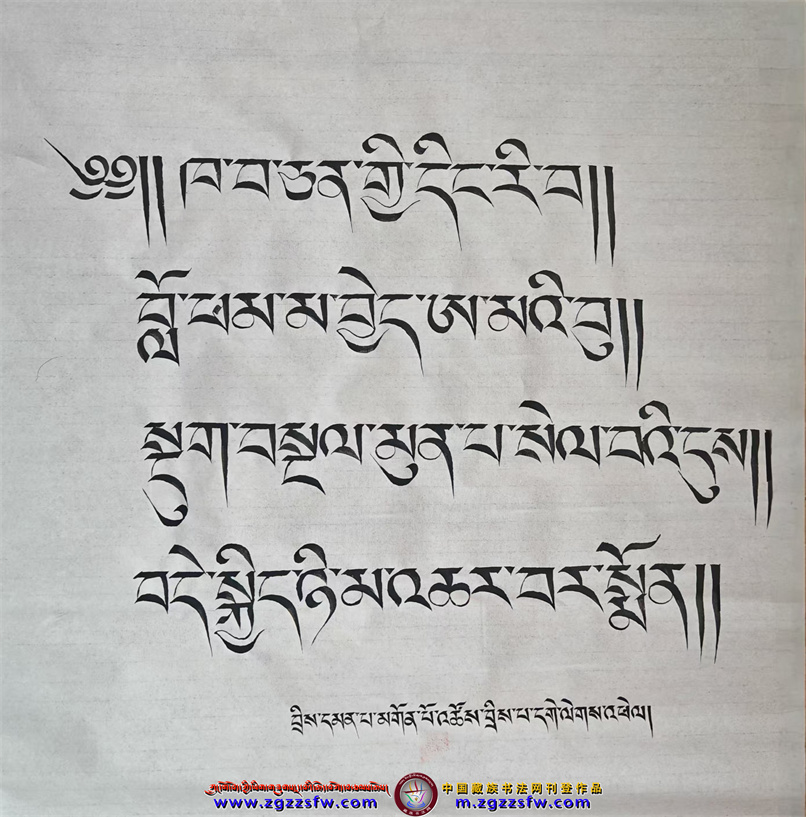 ༄༅།། ཁ་བ་ཅན་གྱི་དིང་རི་བ།།
བློ་ཕམ་མ་བྱེད་ཨ་མའི་བུ།།
སྡུག་བསྔལ་མུན་པ་སེལ་བའི་དུས།།
བདེ་སྐྱིད་ཉི་མ་འཆར་བར་སྨོན།།
བྲིས་དམན་པ་མགོན་པོ་འཚོས་བྲིས་པ་དགེ་ལེགས་འཕེལ།
中国藏族书法网刊登作品
www.zgzzsfw.com m.zgzzsfw.com